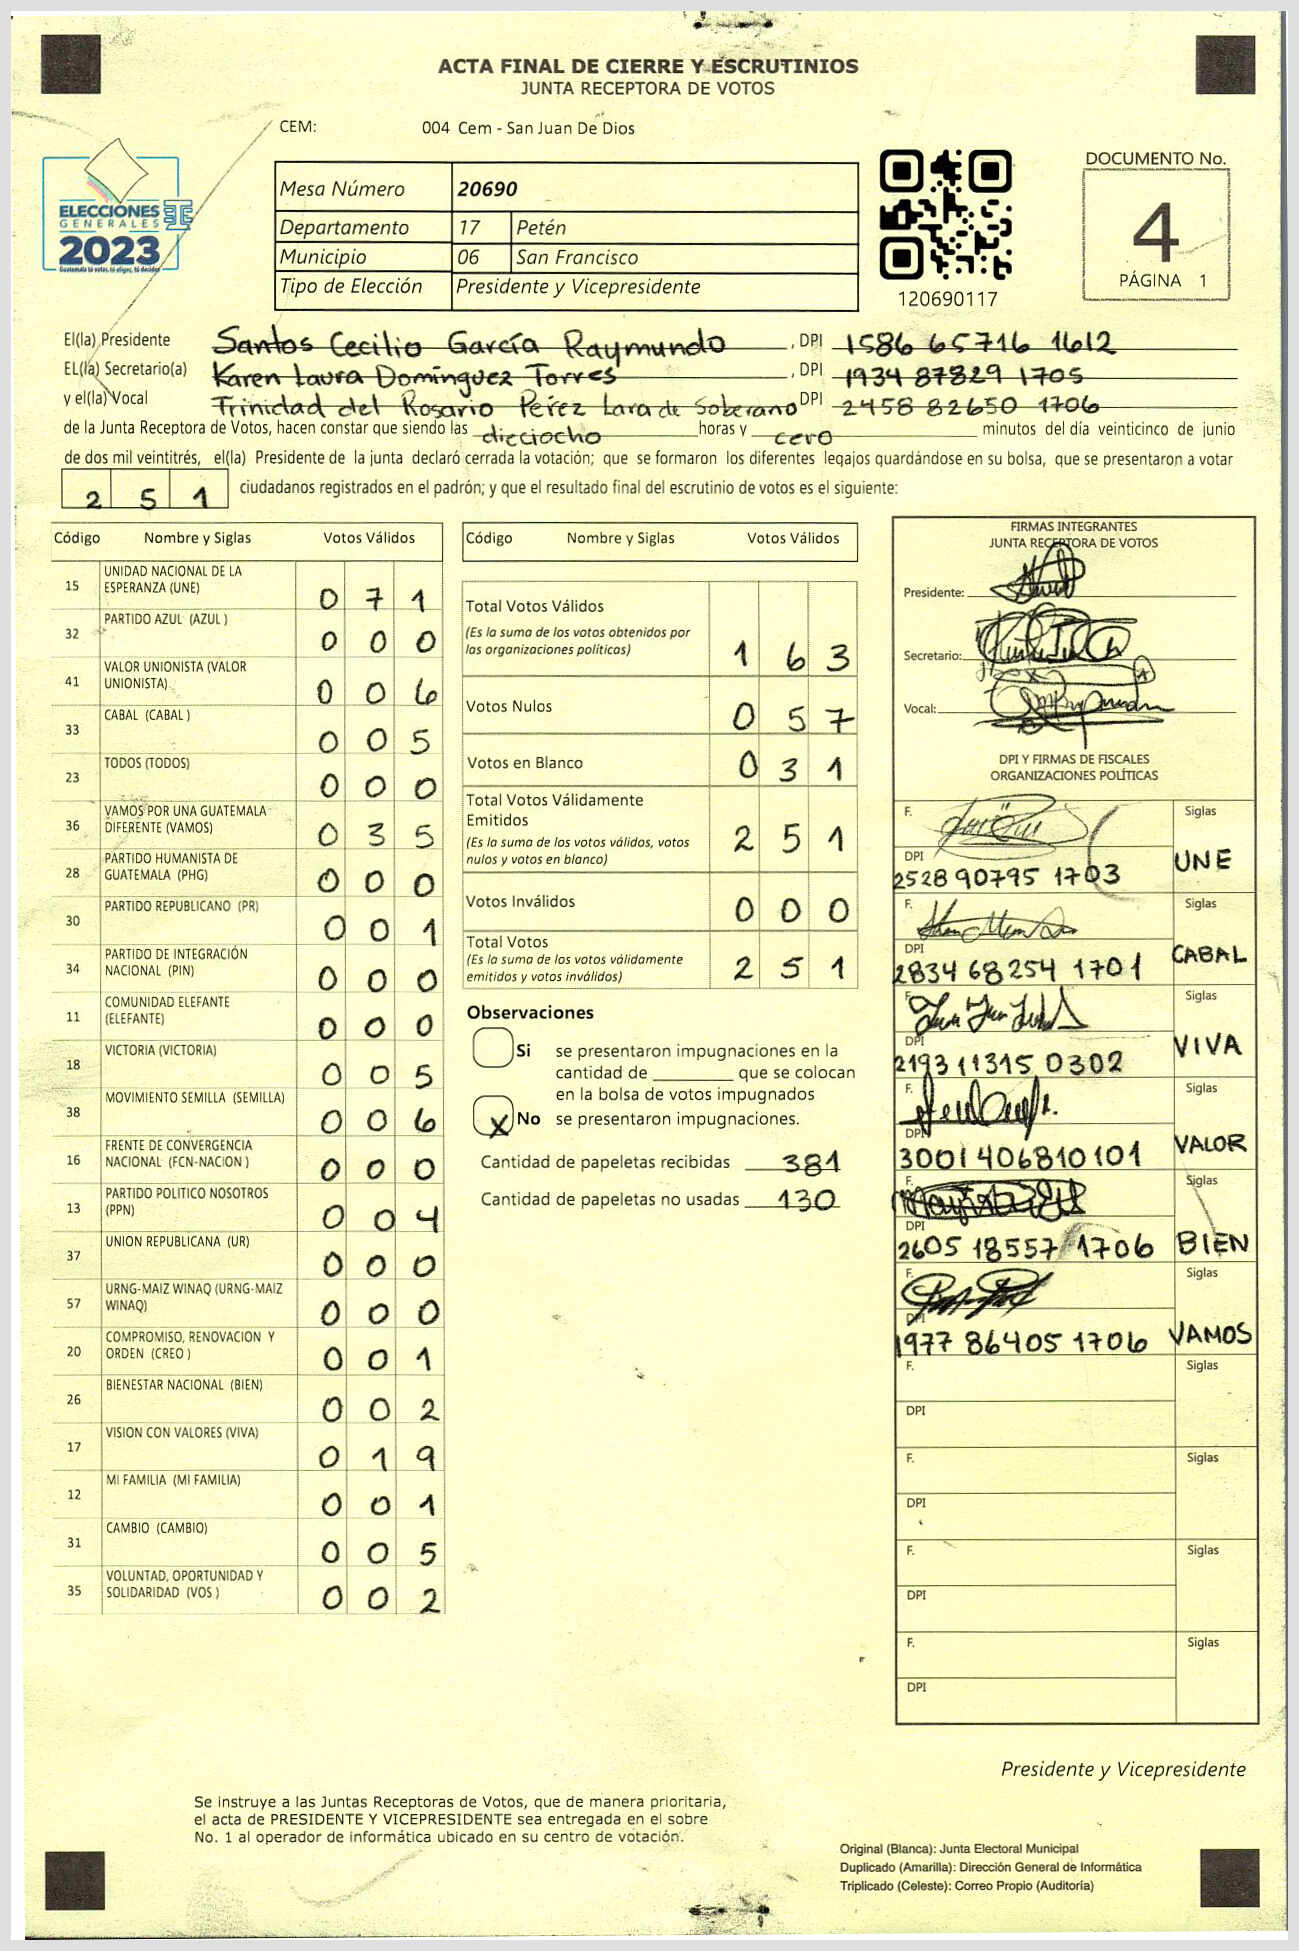 ACTA FINAL DE CIERRE Y ESCRUTINIOS
JUNTA RECEPTORA DE VOTOS
CEM: 004 Cem - San Juan De Dios
ELECCIONES
GENERALES
2023
Guatemala tú votas, tú eliges, tú decides
Mesa Número 20690
Departamento 17 Petén
Municipio 06 San Francisco
Tipo de Elección Presidente y Vicepresidente
120690117
DOCUMENTO No.
4
PÁGINA 1
El(la) Presidente Santos Cecilio García Raymundo , DPI 1586 65716 1612
EL(la) Secretario(a) Karen Laura Domínguez Torres , DPI 1934 87829 1705
y el(la) Vocal Trinidad del Rosario Pérez Lara de Soberano DPI 2458 82650 1706
de la Junta Receptora de Votos, hacen constar que siendo las dieciocho horas y cero minutos del día veinticinco de junio
de dos mil veintitrés, el(la) Presidente de la junta declaró cerrada la votación; que se formaron los diferentes legajos guardándose en su bolsa, que se presentaron a votar
2 5 1 ciudadanos registrados en el padrón; y que el resultado final del escrutinio de votos es el siguiente:
Código Nombre y Siglas Votos Válidos
15 UNIDAD NACIONAL DE LA ESPERANZA (UNE) 0 7 1
32 PARTIDO AZUL (AZUL ) 0 0 0
41 VALOR UNIONISTA (VALOR UNIONISTA) 0 0 6
33 CABAL (CABAL ) 0 0 5
23 TODOS (TODOS) 0 0 0
36 VAMOS POR UNA GUATEMALA DIFERENTE (VAMOS) 0 3 5
28 PARTIDO HUMANISTA DE GUATEMALA (PHG) 0 0 0
30 PARTIDO REPUBLICANO (PR) 0 0 1
34 PARTIDO DE INTEGRACIÓN NACIONAL (PIN) 0 0 0
11 COMUNIDAD ELEFANTE (ELEFANTE) 0 0 0
18 VICTORIA (VICTORIA) 0 0 5
38 MOVIMIENTO SEMILLA (SEMILLA) 0 0 6
16 FRENTE DE CONVERGENCIA NACIONAL (FCN-NACION ) 0 0 0
13 PARTIDO POLITICO NOSOTROS (PPN) 0 0 4
37 UNION REPUBLICANA (UR) 0 0 0
57 URNG-MAIZ WINAQ (URNG-MAIZ WINAQ) 0 0 0
20 COMPROMISO, RENOVACION Y ORDEN (CREO ) 0 0 1
26 BIENESTAR NACIONAL (BIEN) 0 0 2
17 VISION CON VALORES (VIVA) 0 1 9
12 MI FAMILIA (MI FAMILIA) 0 0 1
31 CAMBIO (CAMBIO) 0 0 5
35 VOLUNTAD, OPORTUNIDAD Y SOLIDARIDAD (VOS ) 0 0 2
Código Nombre y Siglas Votos Válidos
Total Votos Válidos
(Es la suma de los votos obtenidos por
las organizaciones políticas) 1 6 3
Votos Nulos 0 5 7
Votos en Blanco 0 3 1
Total Votos Válidamente
Emitidos 2 5 1
(Es la suma de los votos válidos, votos
nulos y votos en blanco)
Votos Inválidos 0 0 0
Total Votos
(Es la suma de los votos válidamente
emitidos y votos inválidos) 2 5 1
Observaciones
Si se presentaron impugnaciones en la
cantidad de ________ que se colocan
en la bolsa de votos impugnados
X No se presentaron impugnaciones.
Cantidad de papeletas recibidas 381
Cantidad de papeletas no usadas 130
FIRMAS INTEGRANTES
JUNTA RECEPTORA DE VOTOS
Presidente:
Secretario:
Vocal:
DPI Y FIRMAS DE FISCALES
ORGANIZACIONES POLÍTICAS
F. Siglas
DPI UNE
2528 90795 1703
F. Siglas
DPI CABAL
2834 68254 1701
F. Siglas
DPI VIVA
2193 11315 0302
F. Siglas
DPI VALOR
3001 40681 0101
F. Siglas
DPI
2605 18557 1706 BIEN
F. Siglas
DPI
1977 86405 1706 VAMOS
F. Siglas
DPI
F. Siglas
DPI
F. Siglas
DPI
F. Siglas
DPI
Presidente y Vicepresidente
Se instruye a las Juntas Receptoras de Votos, que de manera prioritaria,
el acta de PRESIDENTE Y VICEPRESIDENTE sea entregada en el sobre
No. 1 al operador de informática ubicado en su centro de votación.
Original (Blanca): Junta Electoral Municipal
Duplicado (Amarilla): Dirección General de Informática
Triplicado (Celeste): Correo Propio (Auditoría)